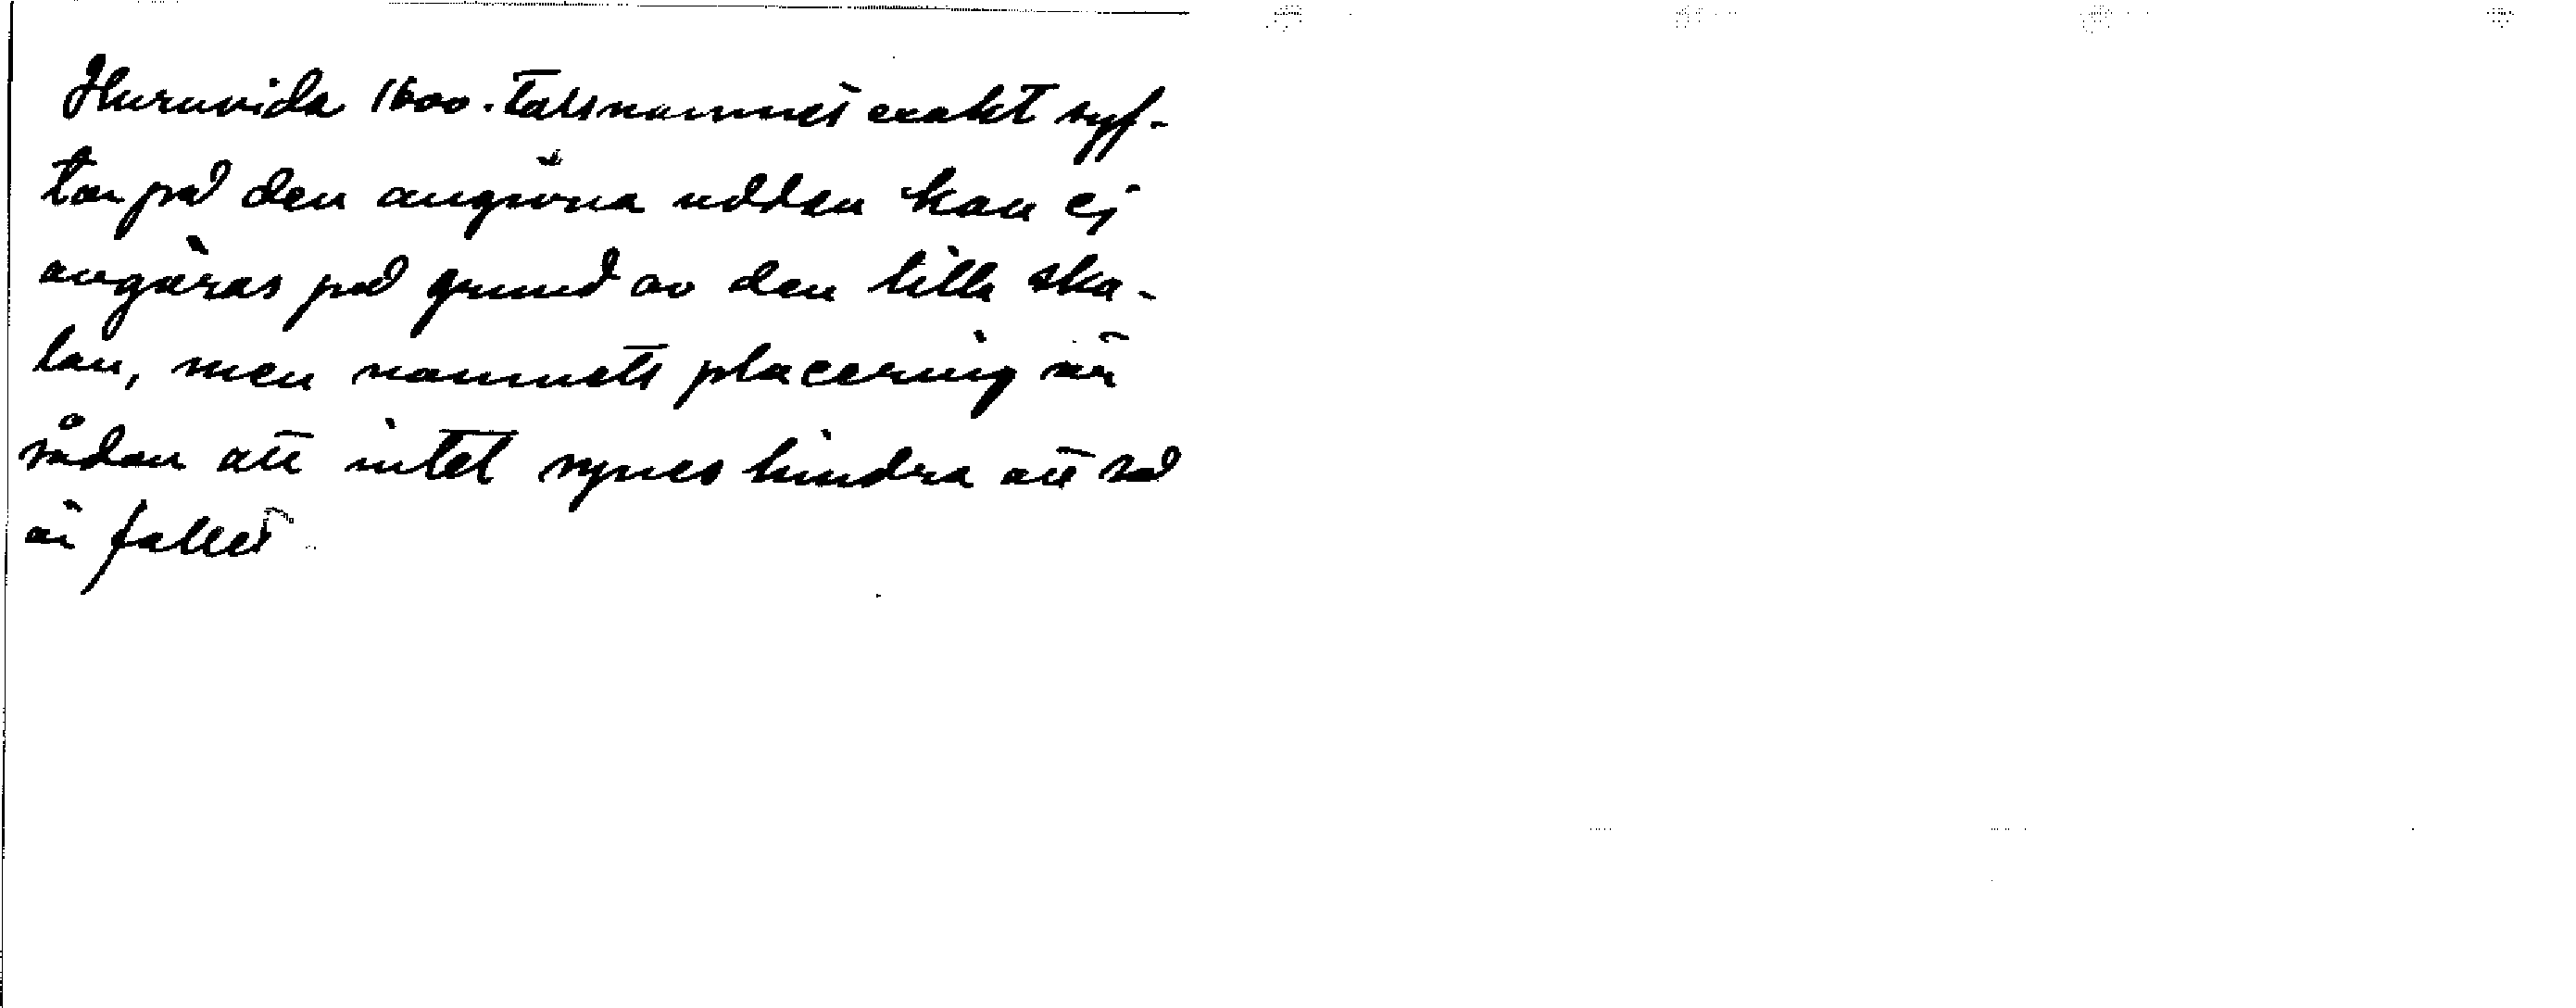 Huruvida 1600-talsnamnet exakt syf-
tar på den angivna udden kan ej
avgöras på grund av den lilla ska-
lan, men namnets placering är
sådan att intet synes hindra att så
är fallet